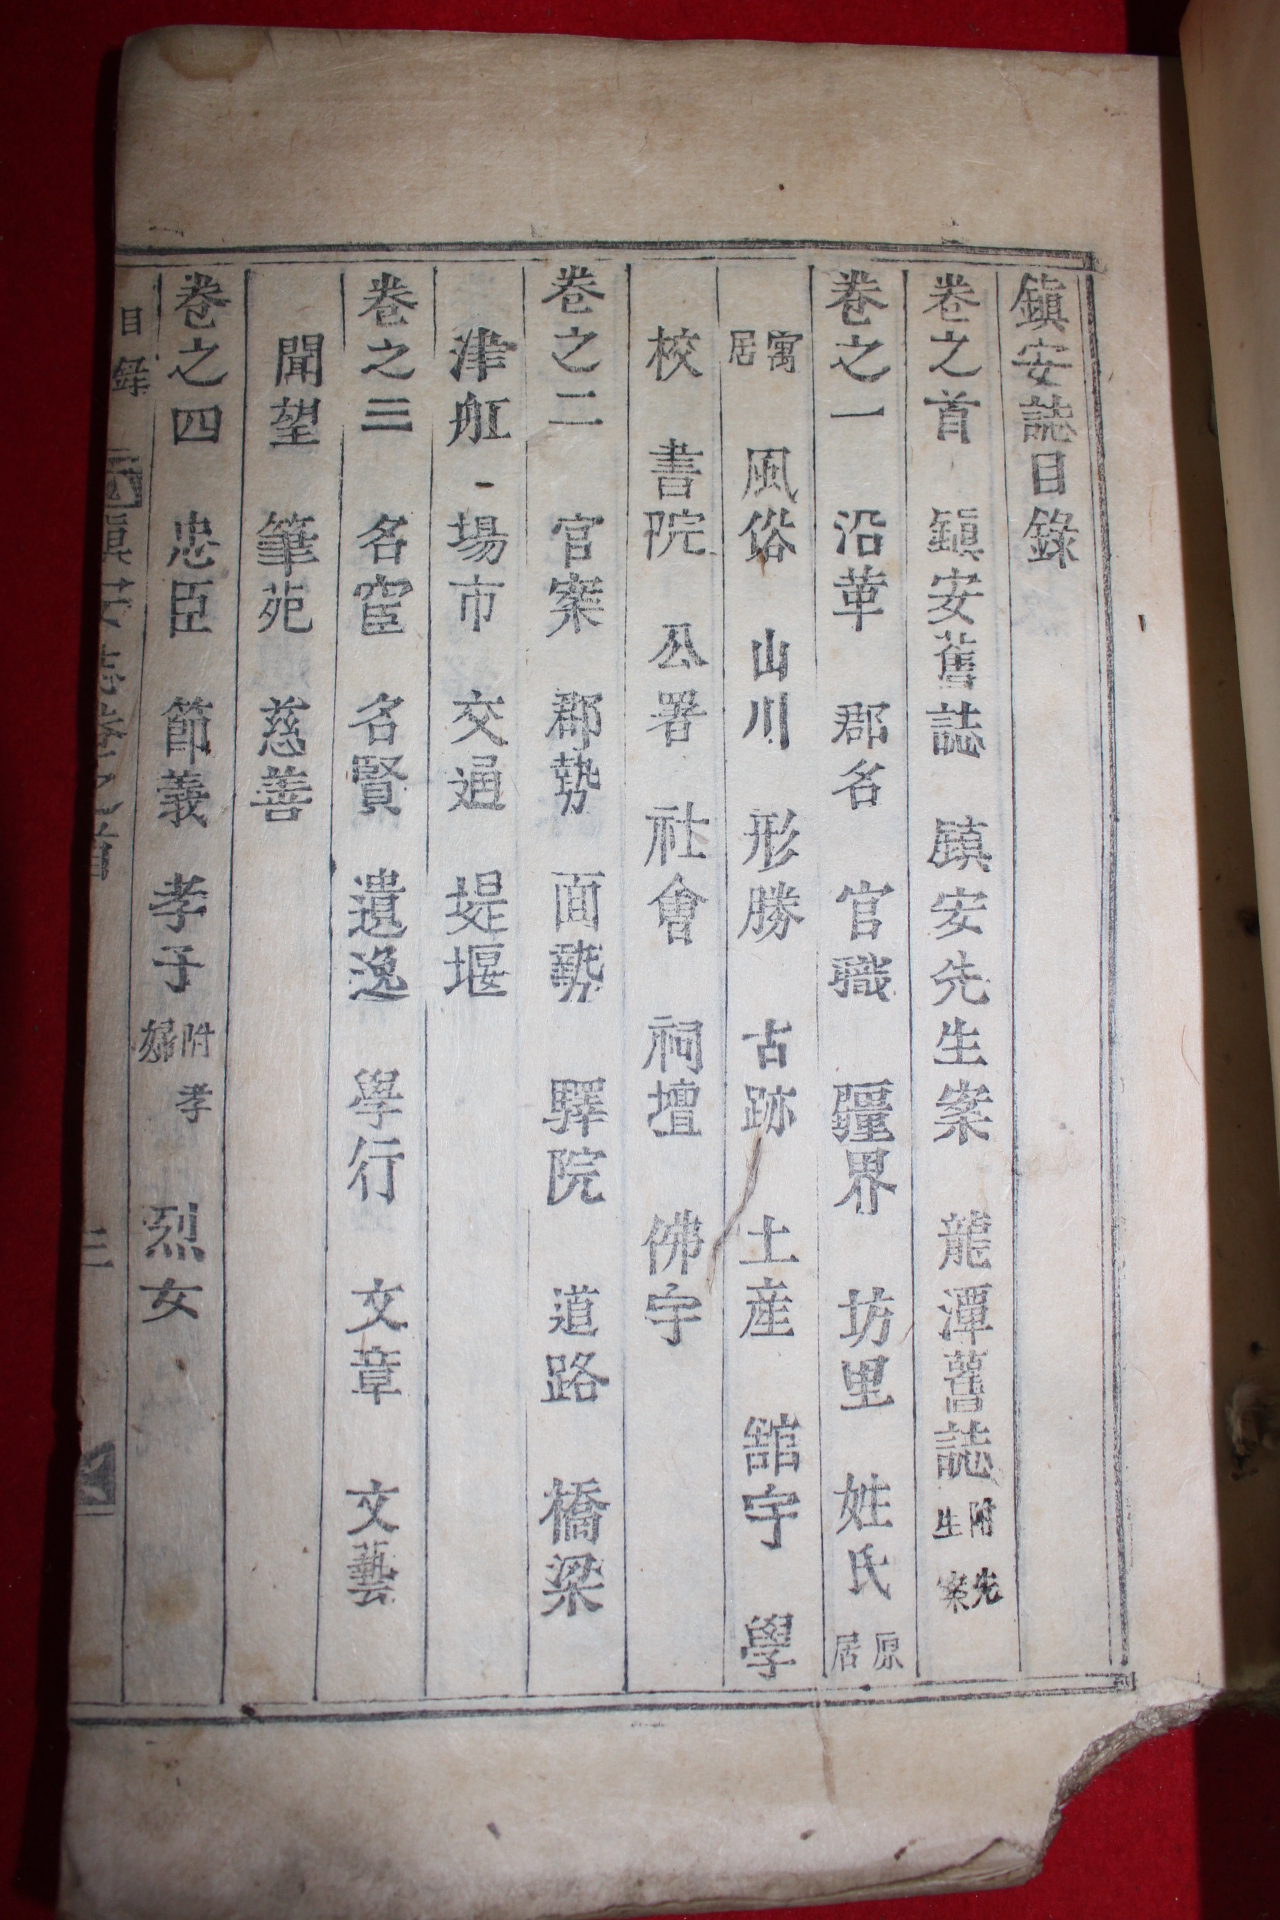 鎭安誌目錄
卷之首　鎭安舊誌　鎭安先生案　龍潭舊誌附先生案
卷之一　沿革　郡名　官職　疆界　坊里　姓氏原居
寓居　風俗　山川　形勝　古跡　土産　舘宇　學
校　書院　公署　社會　祠壇　佛宇
卷之二　官案　郡勢　面勢　驛院　道路　橋梁
津舡　場市　交通　堤堰
卷之三　名宦　名賢　遺逸　學行　文章　文藝
聞望　筆苑　慈善
卷之四　忠臣　節義　孝子附孝婦　烈女
目錄